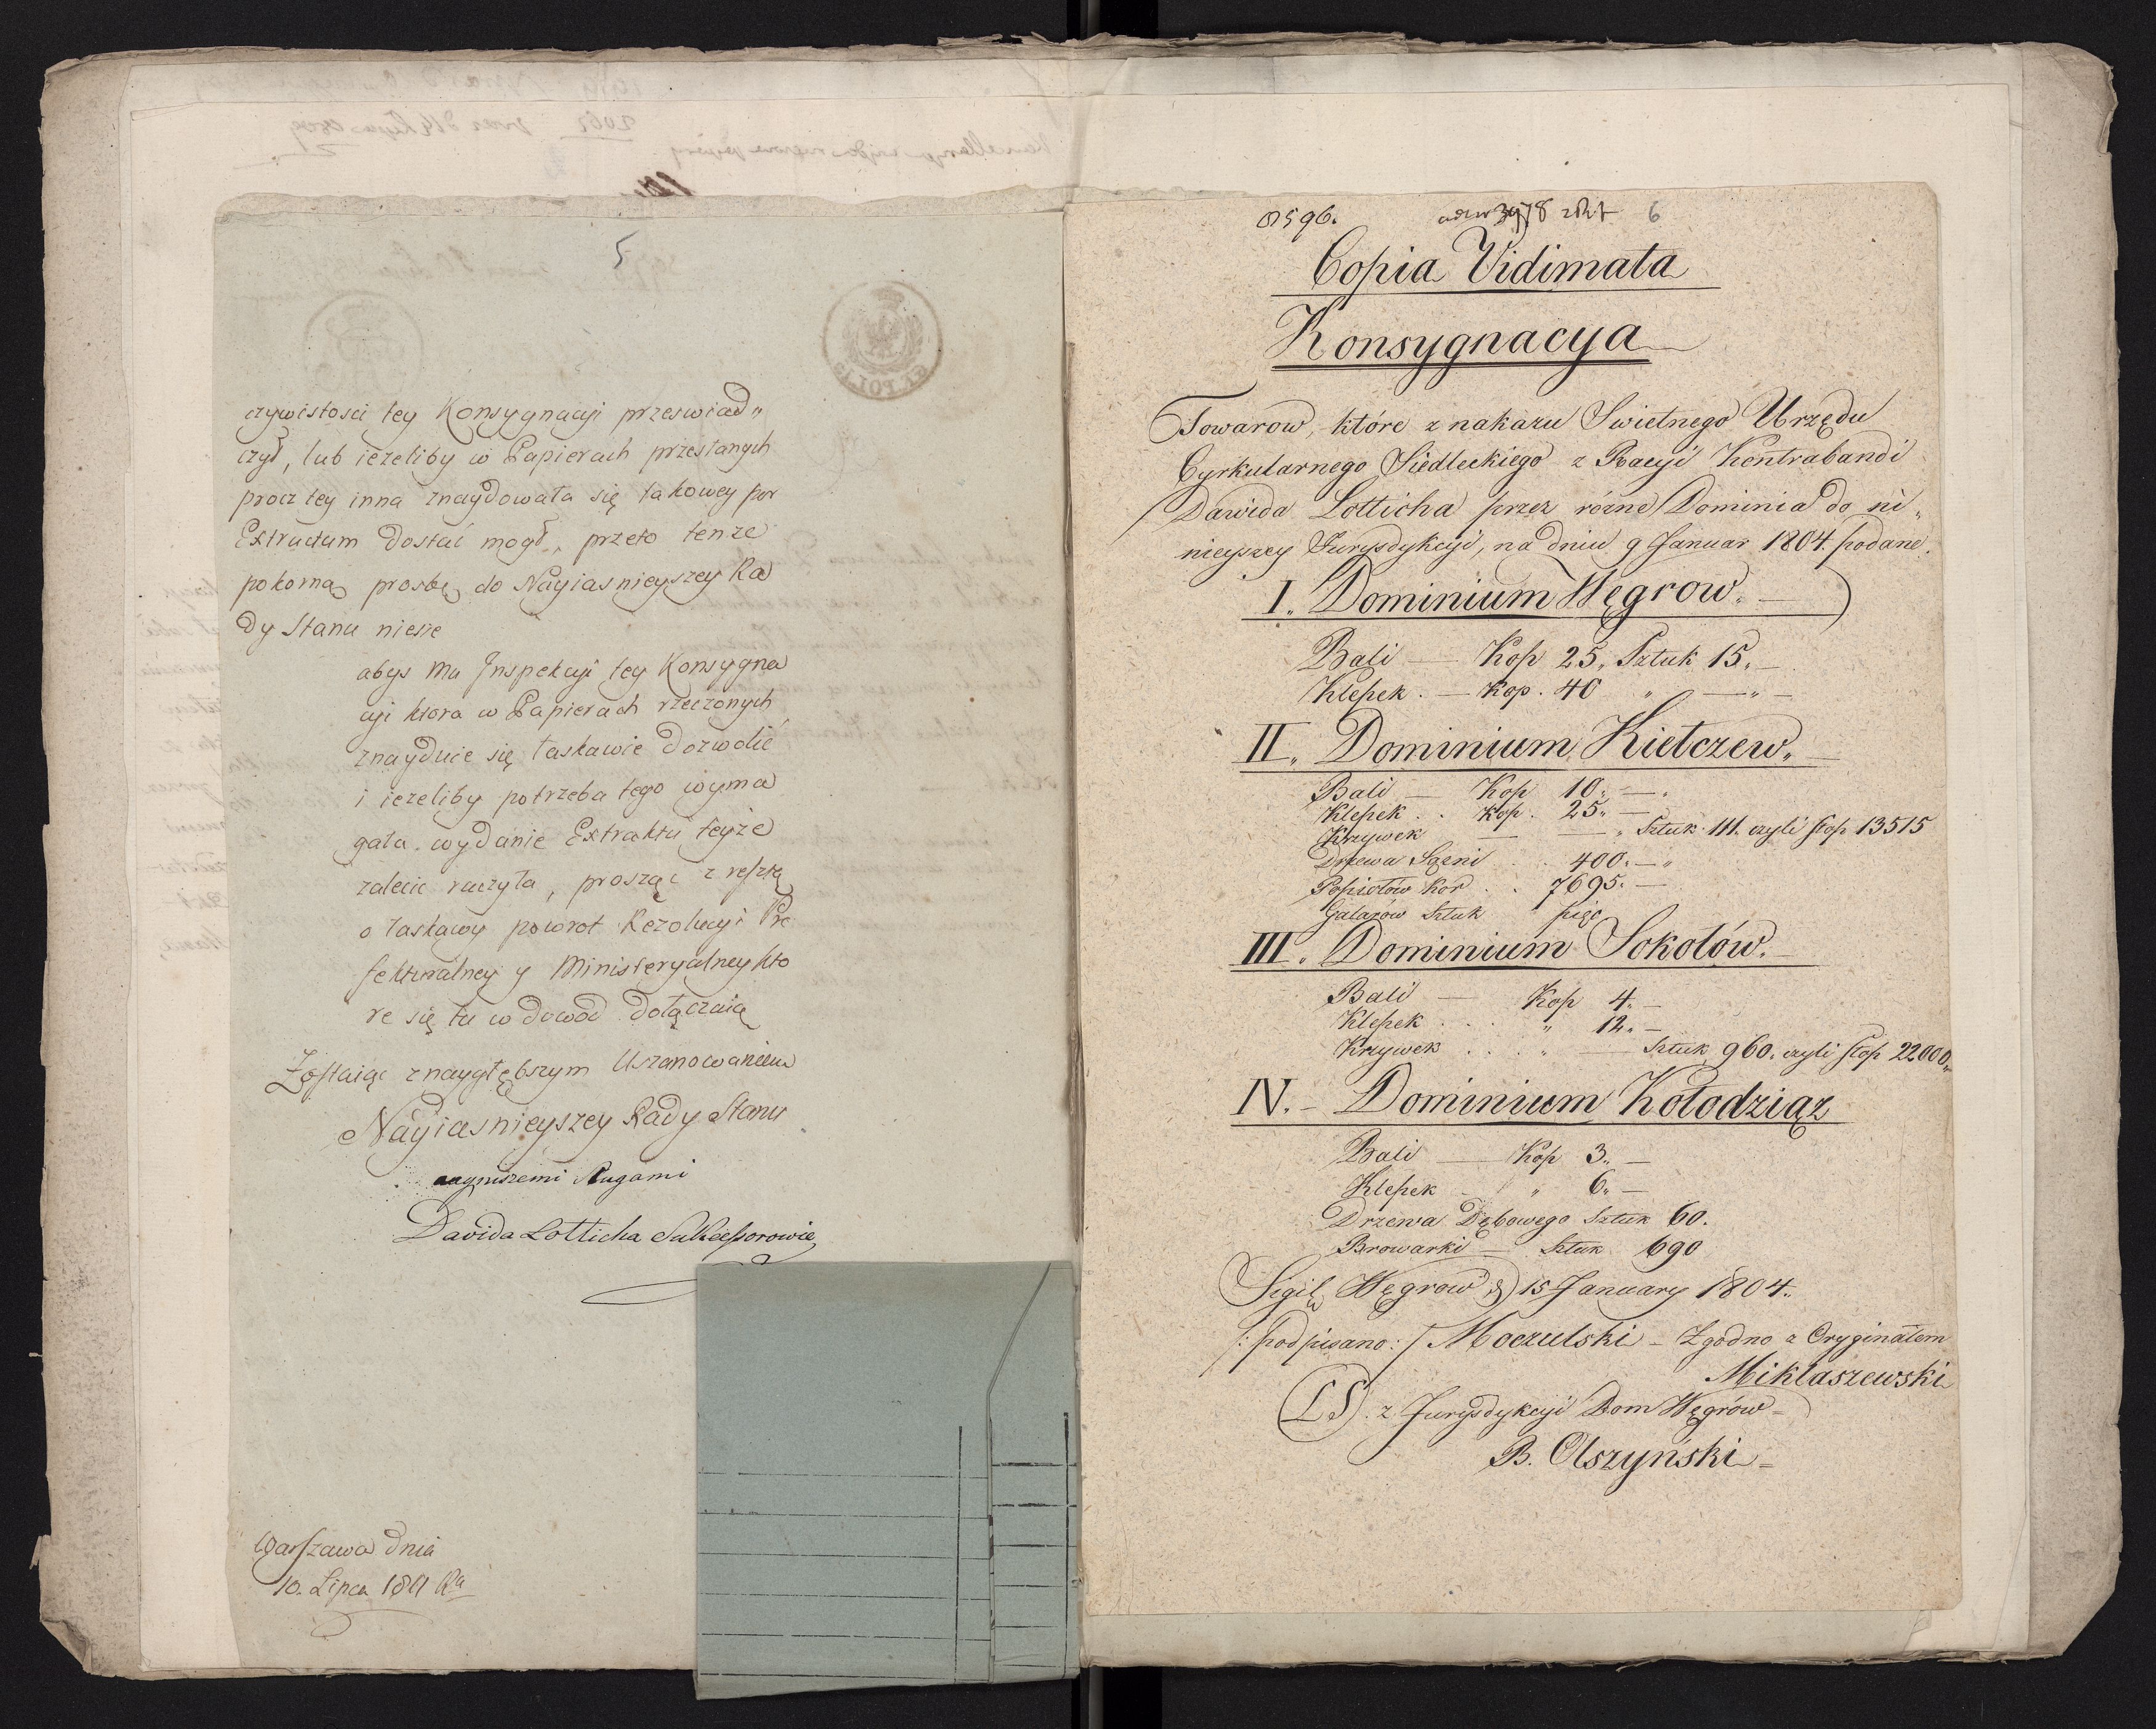 5
czywistosci tey Konsygnacyi przeswiad„
czył, lub ieżeliby w Papierach przesłanych
procz tey inna znaydowała się takowey per
Extractum dostać mogł, przeto tenże
pokorną prosbę do Nayiasnieyszey Ra
dy Stanu niesie
abys Ma Inspekcyi tey Konsygna
cyi ktora w Papierach rzeczonych
znayduie się łaskawie dozwolić
i ieżeliby potrzeba tego wyma
gała wydanie Extraktu teyże
zalecić raczyła, prosząc z resztą
o łaskawy powrot Rezolucyi Pre
fekturalney y Ministeryalney kto
re się tu w dowod dołączaią
Zostaiąc z naygłębszym Uszanowaniem
Nayiasnieyszey Rady Stanu
naynizszemi Sługami
Davida Lotticha Sukcessorowie
Warszawa dnia
10. Lipca 1811 Ra
6
Copia Vidimata
Konsygnacya
Towarow, które z nakazu Swietnego Urzędu
Cyrkularnego Siedleckiego z Racyi Kontrabandi
Dawida Lotticha przez różne Dominia do ni„
nieyszey Jurysdykcyi, na dniu 9 Januar 1804. podane.
I. Dominium Węgrow. —
Bali — Kop 25, Sztuk 15. —
Klepek. — Kop. 40 „ — „ —
II. Dominium Kiełczew. —
Bali — Kop 10. —
Klepek . . Kop. 25. —
Krzywek — — „ Sztuk 111. czyli stop 13515
Drzewa Sążni . . 400. — „
Popiołów Kor . . 7695. —
Galarów Sztuk pięć
III. Dominium Sokołów. —
Bali — Kop 4. —
Klepek . . . „ 12. —
Krzywek . . . „ — Sztuk 960. czyli stop 22000.
IV. — Dominium Kołodziąż
Bali — Kop 3. —
Klepek — „ 6. —
Drzewa Dębowego Sztuk 60.
Browarki — Sztuk 690
Sigil. w Węgrow d 15 January 1804.
/: podpisano: / Moczulski — Zgodno z Oryginałem
Mikłaszewski
(LS). z Jurysdykcyi Dom Węgrów —
B. Olszyński —